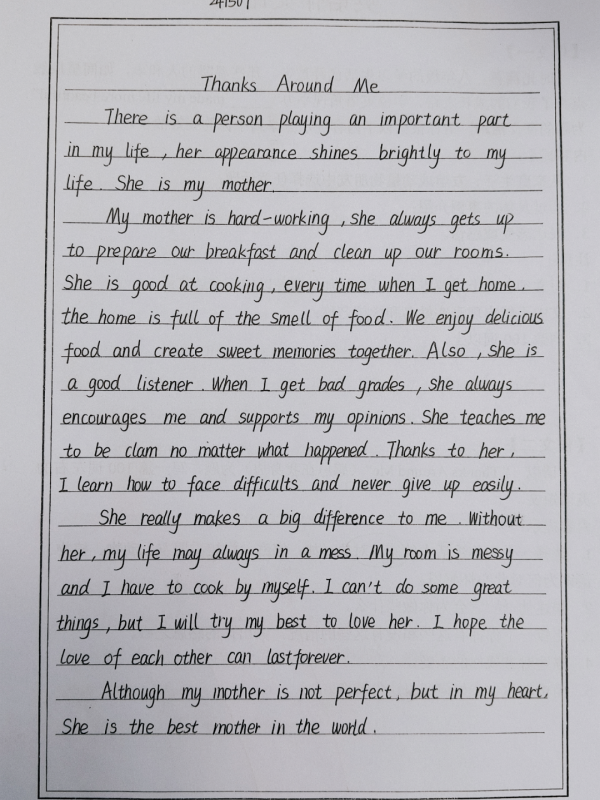 Thanks Around Me
There is a person playing an important part
in my life , her appearance shines brightly to my
life . She is my mother.
My mother is hard-working , she always gets up
to prepare our breakfast and clean up our rooms.
She is good at cooking , every time when I get home ,
the home is full of the smell of food. We enjoy delicious
food and create sweet memories together. Also , she is
a good listener . When I get bad grades , she always
encourages me and supports my opinions. She teaches me
to be clam no matter what happened . Thanks to her ,
I learn how to face difficults and never give up easily .
She really makes a big difference to me . Without
her , my life may always in a mess. My room is messy
and I have to cook by myself. I can't do some great
things , but I will try my best to love her. I hope the
love of each other can last forever.
Although my mother is not perfect, but in my heart,
She is the best mother in the world .